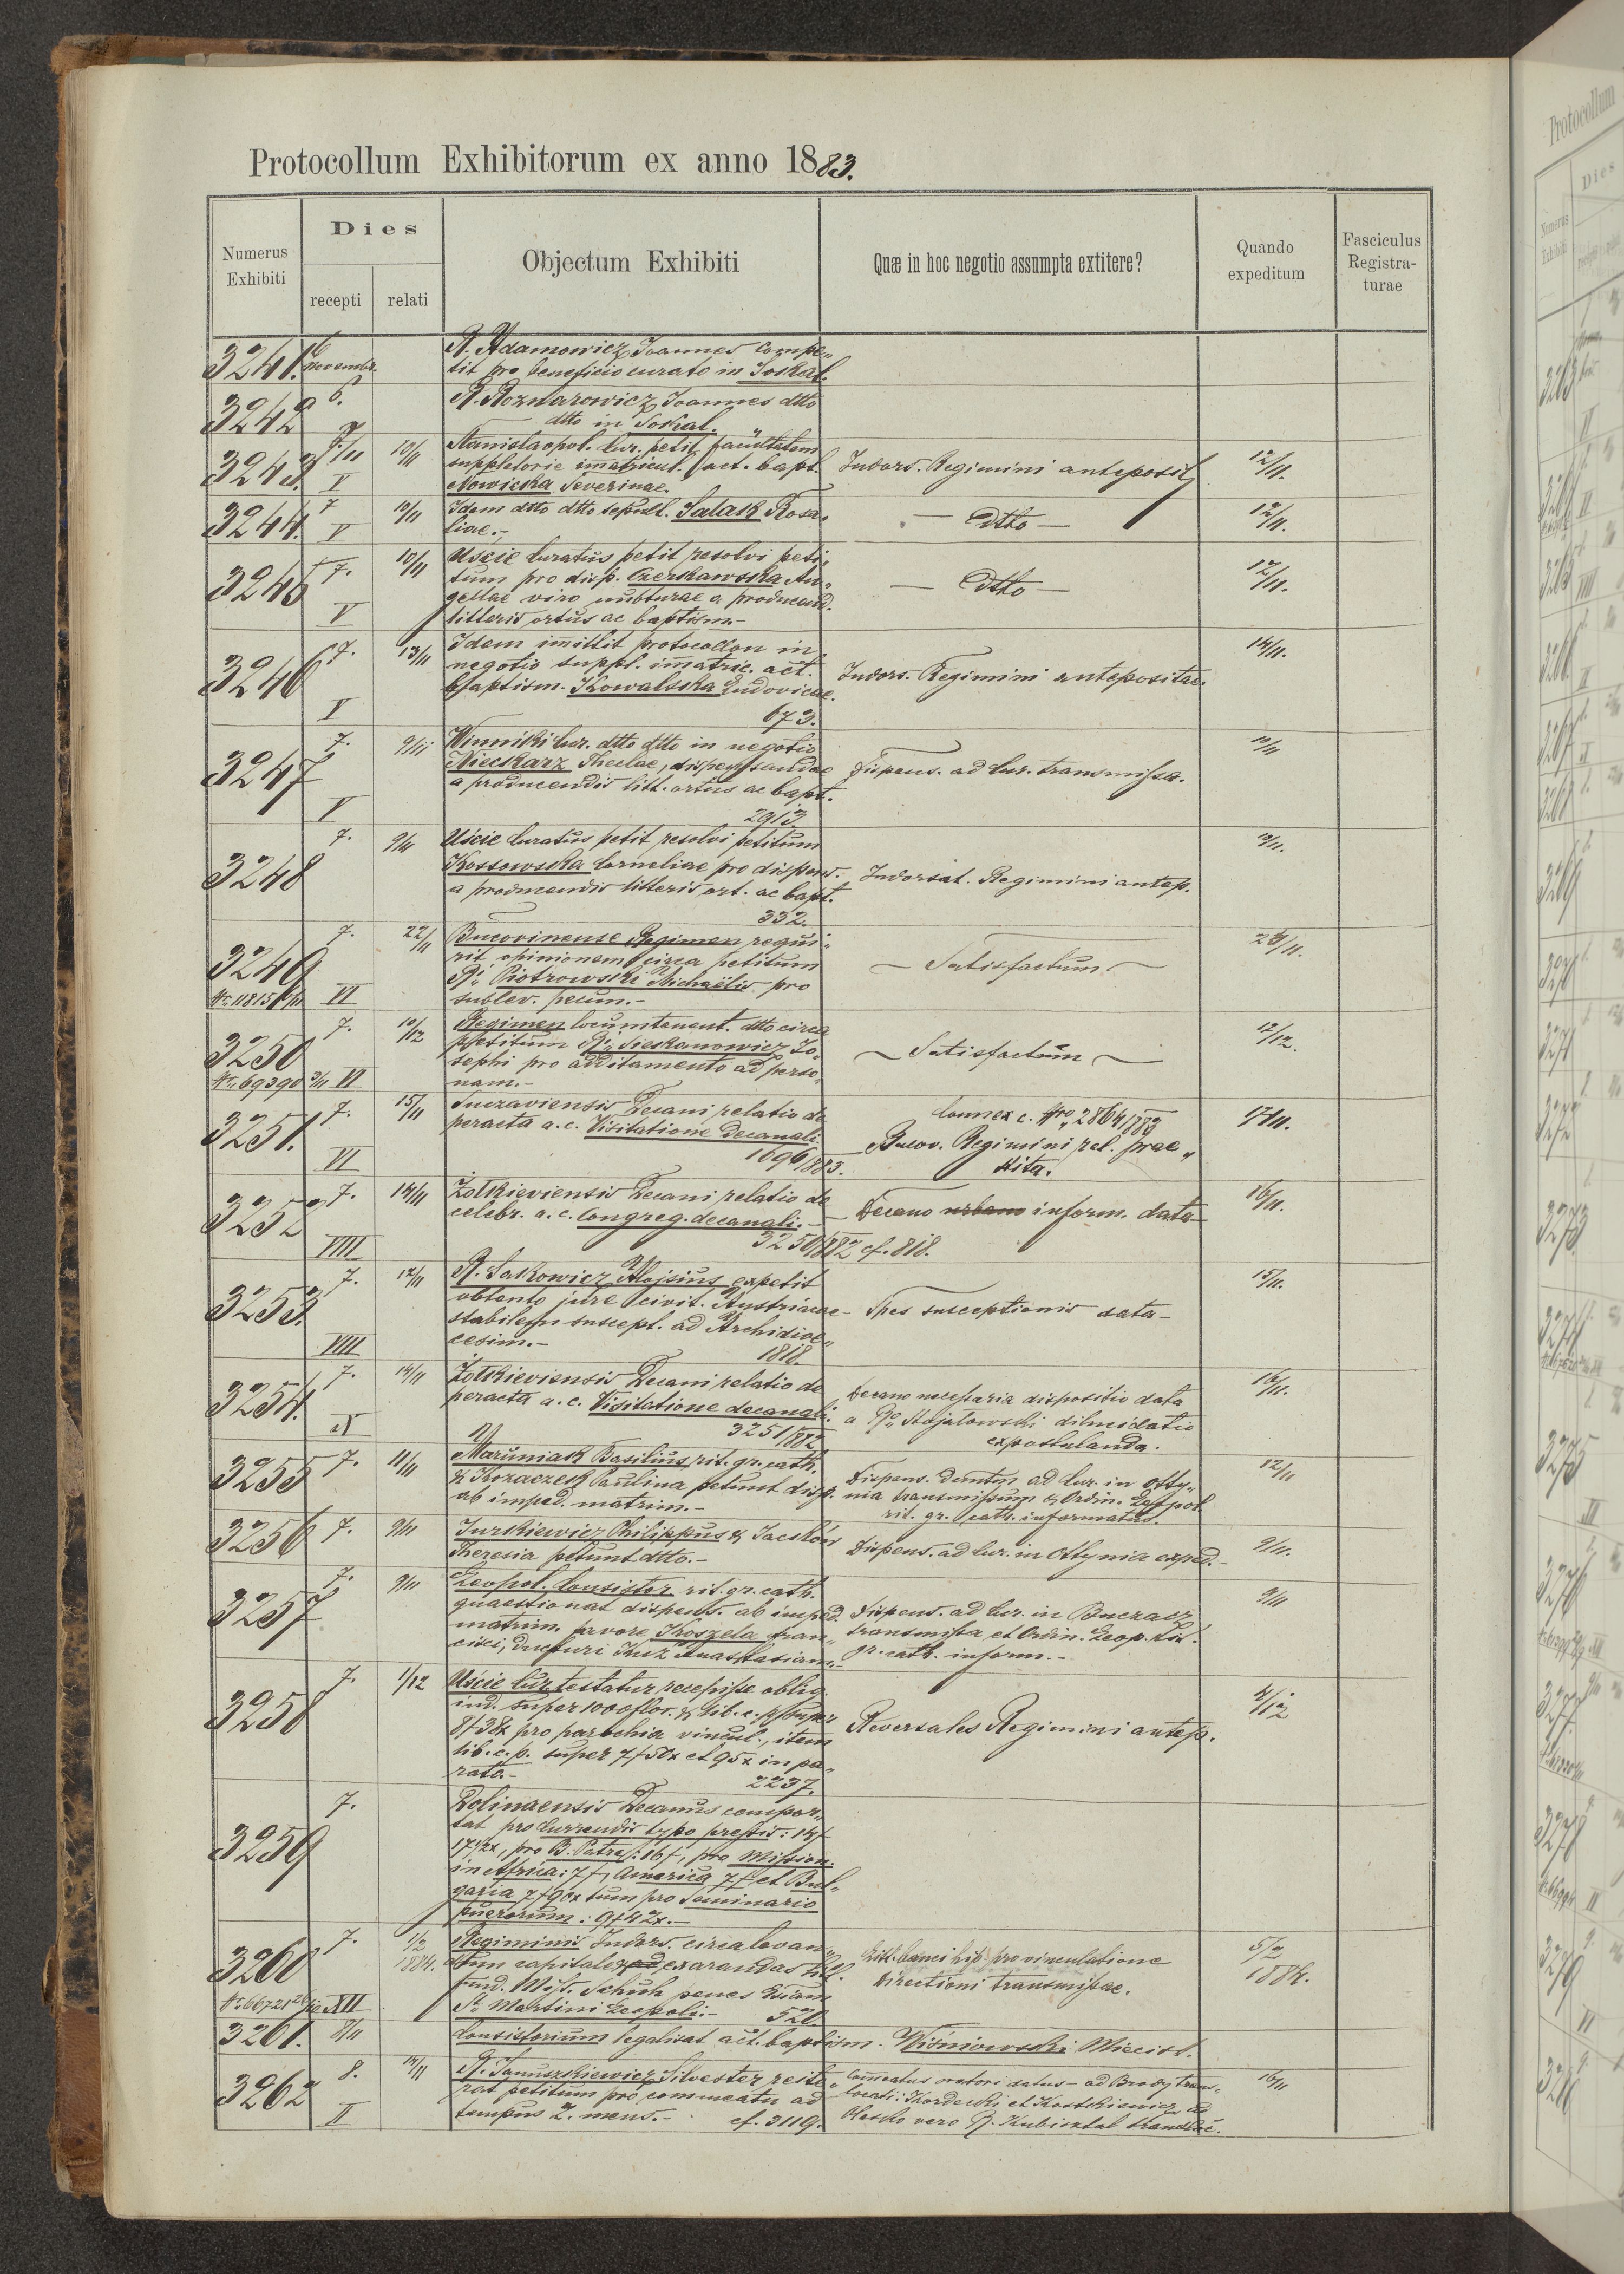 Protocollum Exhibitorum ex anno 1883.
Numerus Exhibiti
Dies
recepti relati
Objectum Exhibiti
Quæ in hoc negotio assumpta extitere?
Quando expeditum
Fasciculus Registra-
turae
3241. 6 novembr.
R. Adamowicz Joannes compe„
tit pro beneficio curato in Sokal.
3242 6.
R. Roznarowicz Joannes dtto
dtto in Sokal.
3243. 7./11 V 10/11
Stanislaopol. Cur. petit facultatem
suppletorie imatricul. act. bapt.
Nowicka Severinae.
Indors. Regimini anteposit
12/11.
3244. 7 V 10/11
Idem dtto dtto sepult. Salak Rosa„
liae.-
— dtto —
12/11.
3245 7. V 10/11
Uscie Curatus petit resolvi peti„
tum pro disp. Czerkawska An„
gellae viro nubturae a producend.
litteris ortus ac baptism.-
— dtto —
12/11.
3246 7. V 13/11
Idem imittit protocollon in
negotio suppl. imatric. act.
baptism. Kowalska Ludovicae.
673.
Indors. Regimini antepositae.
14/11.
3247 7. V 9/11
Winniki Cur. dtto dtto in negotio
Nieckarz Theclae, dispensandae
a producendis litt. ortus ac bapt.
2913.
Dispens. ad Cur. transmissa.
11/11
3248 7. 9/11
Uście Curatus petit resolvi petitum
Kossowska Corneliae pro dispens.
a producendis litteris ort. ac bapt.
332.
Indorsat. Regimini antep.
3249 7. VI 22/11
Nr. 11815
Bucovinense Regimen requi„
rit opinionem circa petitum
Ri„ Piotrowski Michaëlis pro
sublev. pecun.-
— Satisfactum —
24/11.
3250 7. VI 10/12
Nr. 69390 3/11
Regimen locumtenent. dtto circa
petitum Ri„ Sieskanowicz Jo„
sephi pro additamento ad perso„
nam.-
— Satisfactum —
12/12.
3251. 7. VI 15/11
Suczaviensis Decani relatio de
peracta a.c. Visitatione decanali.
1696/883.
Connex c. Nro 2864/883
Bucov. Regimini rel. prae„
stita.
17/11.
3252 7. VIII 14/11
Żołkieviensis Decani relatio de
celebr. a.c. Congreg. decanali.-
3250/882 cf. 818.
Decano urbano inform. data-
16/11.
3253. 7. VIII 12/11
R. Sakowicz Alojsius expetit
obtento jure civit. Austriacae
stabilem suscept. ad Archidioe„
cesim.-
1818.
- Spes susceptionis data -
15/11.
3254. 7. 14/11
Żołkieviensis Decani relatio de
peracta a.c. Visitatione decanali.
3251/882
Decano necessaria dispositio data
a Ro„ Stojałowski dilucidatio
expostulanda.
16/11.
3255 7. 11/11
Maruniak Basilius rit. gr. cath.
& Kozaczek Paulina petunt disp.
ab imped. matrim.-
Dispens. ad Cur. in Otty„
nia transmissum & Ordin. Leopol.
rit. gr. cath. informatus.
12/11
3256 7. 9/11
Jurkiewicz Philippus & Jackōw
Theresia petunt dtto.-
Dispens. ad Cur. in Ottynia exped.-
9/11.
3257 7. 9/11
Leopol. Consistor. rit. gr. cath.
quaestionat dispens. ab imped.
matrim. favore Koszela Fran„
cisci, ducturi Kuź Anastasiam.-
Dispens. ad Cur. in Buczacz
transmissa et Ordin. Leop. rit.
gr. cath. inform.-
9/11
3258 7. 1/12
Uście Cur. testatur recepisse oblig.
ind. super 1000 flor. & lib. c. p. super
8f 38x pro parochia vincul., item
lib. c. p. super 7f 50x et 95x in pa„
rato.-
2237.
Reversales Regimini antep.
4/12
3259 7.
Dolinaensis Decanus compor„
tat pro Currendis typo pressis: 14f
17½x, pro B. Patres: 16f, pro Mission.
in Africa: 7f, America 7f et Bul„
garia 7f 90x tum pro Seminario
puerorum: 9f 42x.-
3260 7. XII 1/2 1884.
Nr. 66721
Regiminis Indors. circa levan„
dum capitale ad exarandas litt.
fund. Mis. Schuh penes Eccl.iam
St. Martini Leopoli.- 520.
Directioni transmissae.
5/2 1884.
3261. 8/11
Consistorium legalisat act. baptism. Wiśniowski Miecisl.
3262 8. II 14/11
R. Januszkiewicz Silvester reite„
rat petitum pro commeatu ad
tempus 2. mens.- cf. 3119.
Comeatus oratori datus - ad Brody trans„
locati: Kordecki et Kostkiewicz ad
Olesko vero R. Kubisztal translat.
16/11